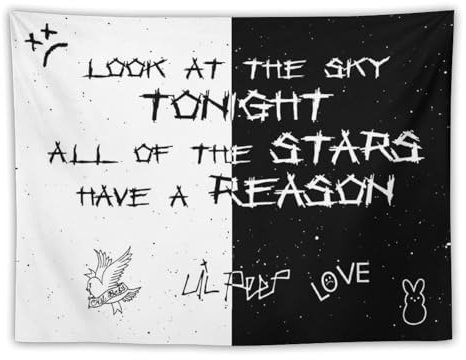 LOOK AT THE SKY
TONIGHT
ALL OF THE STARS
HAVE A REASON
LiL PEEP LOVE